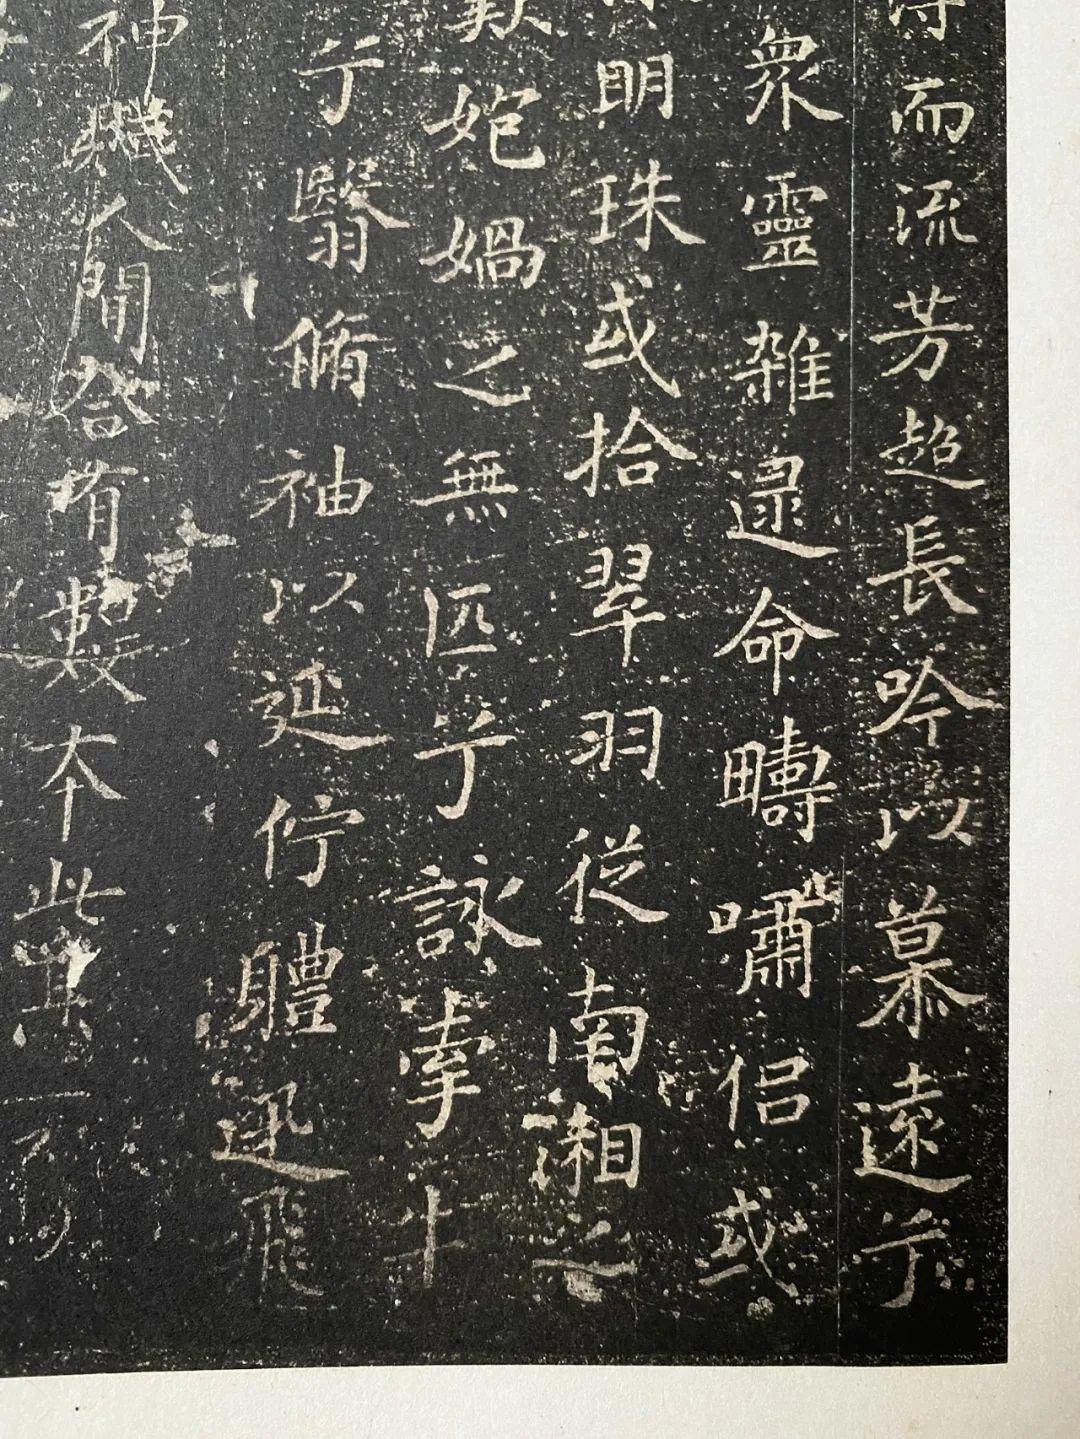 而流芳超長吟以慕遠兮
衆靈雜遝命疇嘯侶或
明珠或拾翠羽從南湘之
歎媧之無匹兮詠牽
兮翳脩袖以延佇體迅飛
神賦人間合有數本此其一